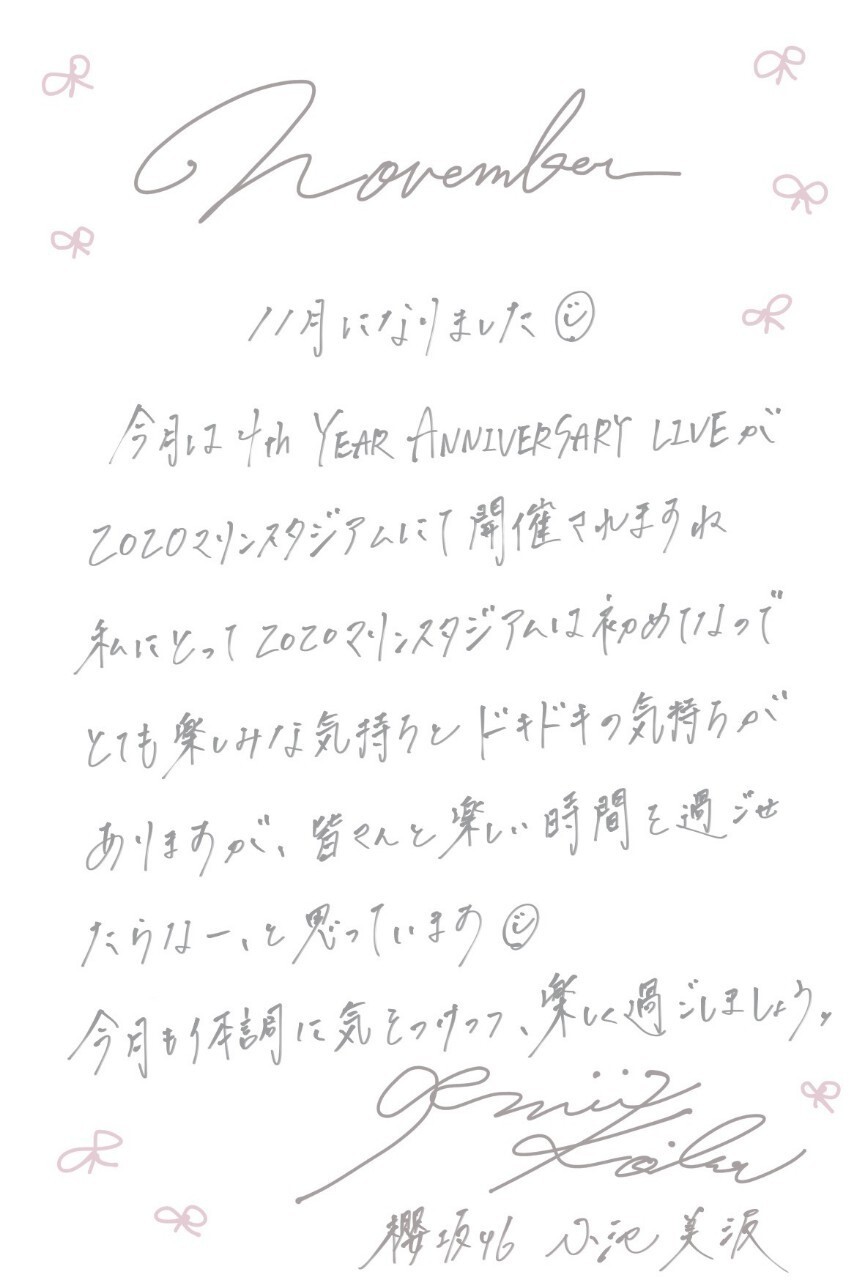 November
11月になりました
今月は4th YEAR ANNIVERSARY LIVEが
ZOZOマリンスタジアムにて開催されますね
私にとってZOZOマリンスタジアムは初めてなので
とても楽しみな気持ちとドキドキの気持ちが
ありますが、皆さんと楽しい時間を過ごせ
たらなー、と思っています
今月も体調に気をつけつつ、楽しく過ごしましょう。
Koike
櫻坂46 小池美波